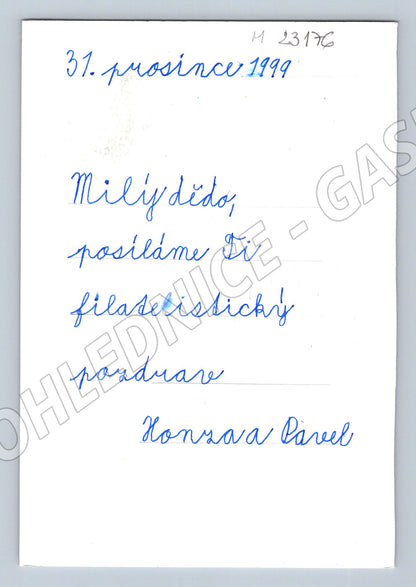 M 23176
31. prosince 1999
Milý dědo,
posíláme Ti
filatelistický
pozdrav
Honza a Pavel
OHLEDNICE - GAS